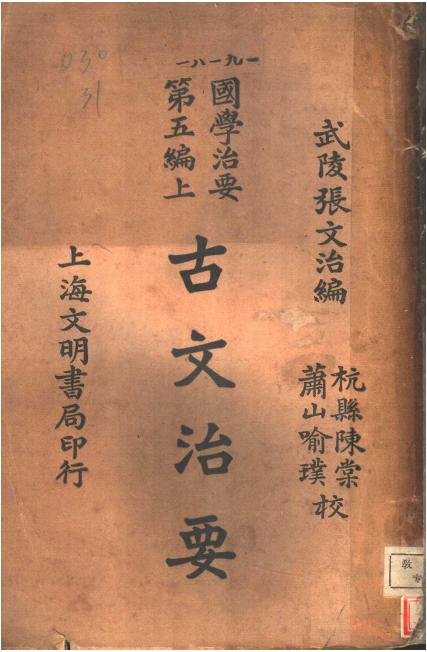 一九一八一
武陵張文治編
杭縣陳棠
蕭山喻璞校
國學治要
第五編上
古文治要
上海文明書局印行
030
31
教